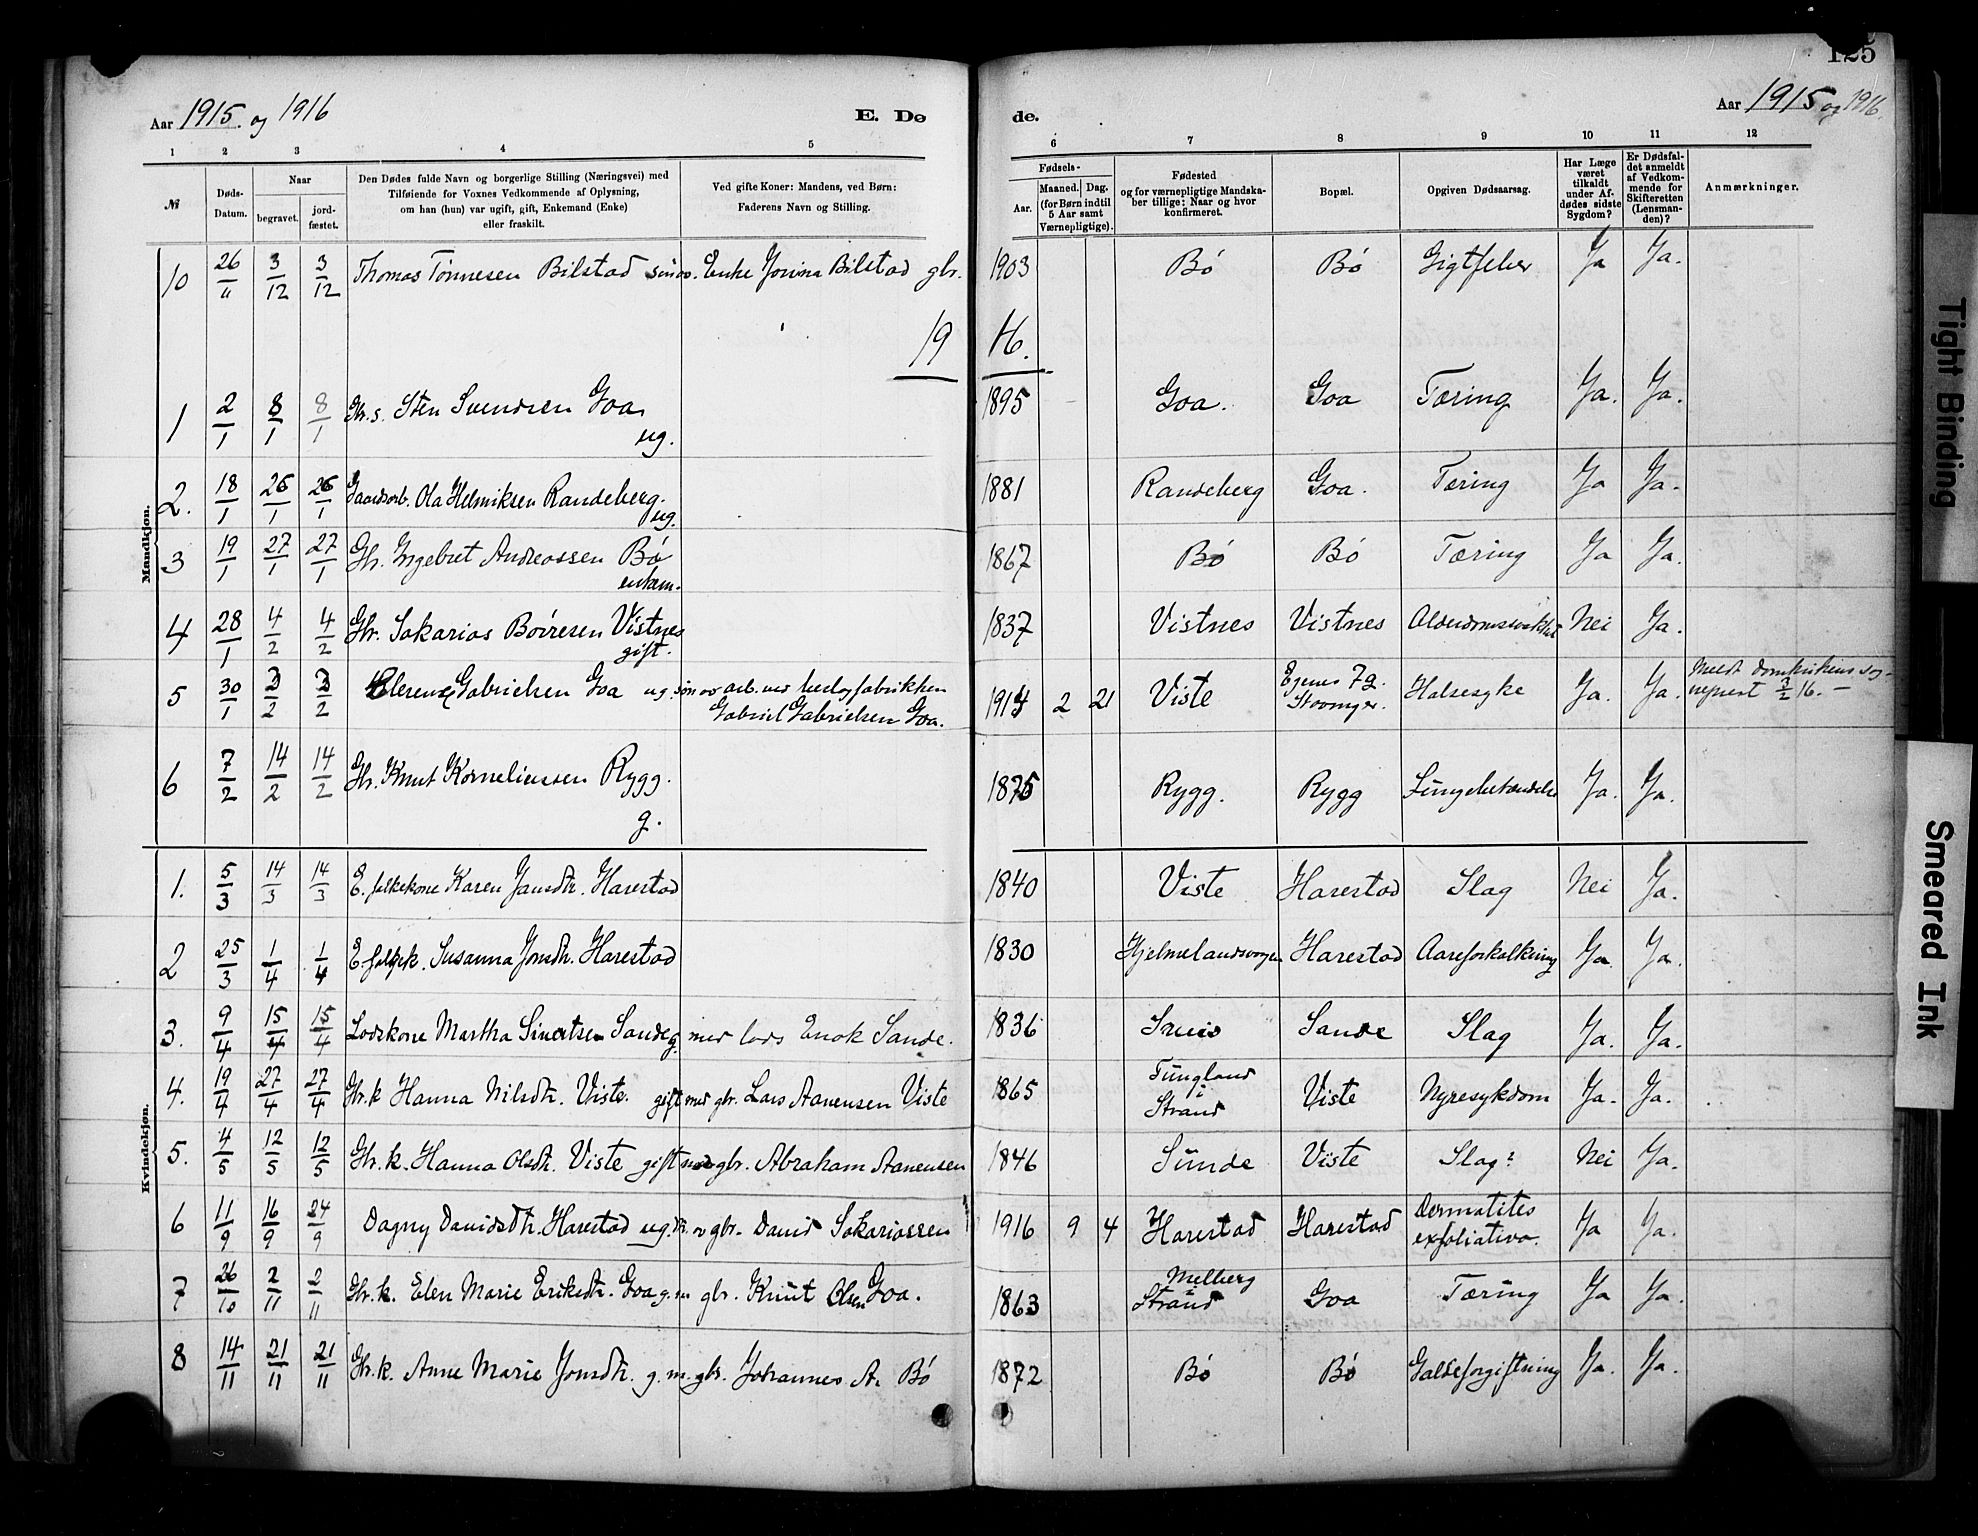 125
Aar 1915 og 1916 E. Dø de. Aar 1915 og 1916.
1 2 3 4 5 6 7 8 9 10 11 12
№ Døds-Datum. Naar begravet. jordfæstet. Den Dødes fulde Navn og borgerlige Stilling (Næringsvei) med Tilføiende for Voxnes Vedkommende af Oplysning, om han (hun) var ugift, gift, Enkemand (Enke) eller fraskilt. Ved gifte Koner: Mandens, ved Børn: Faderens Navn og Stilling. Fødsels- Aar. Maaned. Dag. (for Børn indtil 5 Aar samt Værnepligtige). Fødested og for værnepligtige Mandskaber tillige: Naar og hvor konfirmeret. Bopæl. Opgiven Dødsaarsag. Har Læge været tilkaldt under Afdødes sidste Sygdom? Er Dødsfaldet anmeldt af Vedkommende for Skifteretten (Lensmanden)? Anmærkninger.
10 26/11 3/12 3/12 Thomas Tønnesen Bilstad søn av. Enke Jorina Bilstad gbr. 1903 Bø Bø Gigtfeber Ja Ja.
19 16.
Mandkjøn.
1 2/1 8/1 8/1 Gbr.s. Sten Svendsen Goa ug. 1895 Goa. Goa Tæring Ja. Ja.
2. 18/1 26/1 26/1 Gaardsarb. Ola Helmiksen Randeberg. ug. 1881 Randeberg Goa. Tæring Ja Ja.
3 19/1 27/1 27/1 Gbr. Ingebret Andreassen Bø enkem. 1867 Bø Bø Tæring Ja Ja.
4 28/1 4/2 4/2 Gbr. Sakarias Børresen Vistnes gift. 1837 Vistnes Vistnes Alderdomssvakhet Nei Ja.
5 30/1 3/2 3/2 Gabrielsen Goa ug. søn av arb. ved Gabriel Gabrielsen Goa. 1914 2 21 Viste Egenes 7 g. Stavanger. Halsesyke Ja. Ja. Meldt Domkirkens sogneprest 3/2 16. —
6 7/2 14/2 14/2 Gbr. Knut Korneliussen Rygg. g. 1875 Rygg. Rygg Lungebetændelse Ja. Ja.
Kvindekjøn.
1. 5/3 14/3 14/3 E. folkekone Karen Jansdtr. Harestad 1840 Viste Harestad Slag Nei Ja.
2 25/3 1/4 1/4 E. Susanna Jonsdtr. Harestad 1830 Hjelmelandsvågen Harestad Aareforkalkning Ja. Ja.
3. 9/4 15/4 15/4 Lodskone Martha Sivertsen Sande g. med lods Enok Sande. 1836 Sande Slag Ja. Ja.
4. 19/4 27/4 27/4 Gbr.k Hanna Nilsdtr. Viste. gift med gbr. Lars Aanensen Viste 1865 Tungland i Strand Viste Nyresykdom Ja. Ja.
5. 4/5 12/5 12/5 Gbr.k. Hanna Olsdtr. Viste gift med gbr. Abraham Aanensen 1846 Sunde Viste Slag? Nei Ja.
6 11/9 16/9 24/9 Dagny Davidsdtr. Harestad ug. dtr. av gbr. David Sakariassen 1916 9 4 Harestad Harestad Dermatites exfoliativa. Ja Ja.
7 26/10 2/11 2/11 Gbr.k. Elen Marie Eriksdtr. Goa g. m gbr. Knut Olsen Goa. 1863 Melberg i Strand Goa Tæring Ja Ja.
8 14/11 21/11 21/11 Gbr.k. Anne Marie Jonsdtr. g. m. gbr. Johannes A. Bø 1872 Bø Bø Galdeforgiftning Ja. Ja.
Tight Binding
Smeared Ink